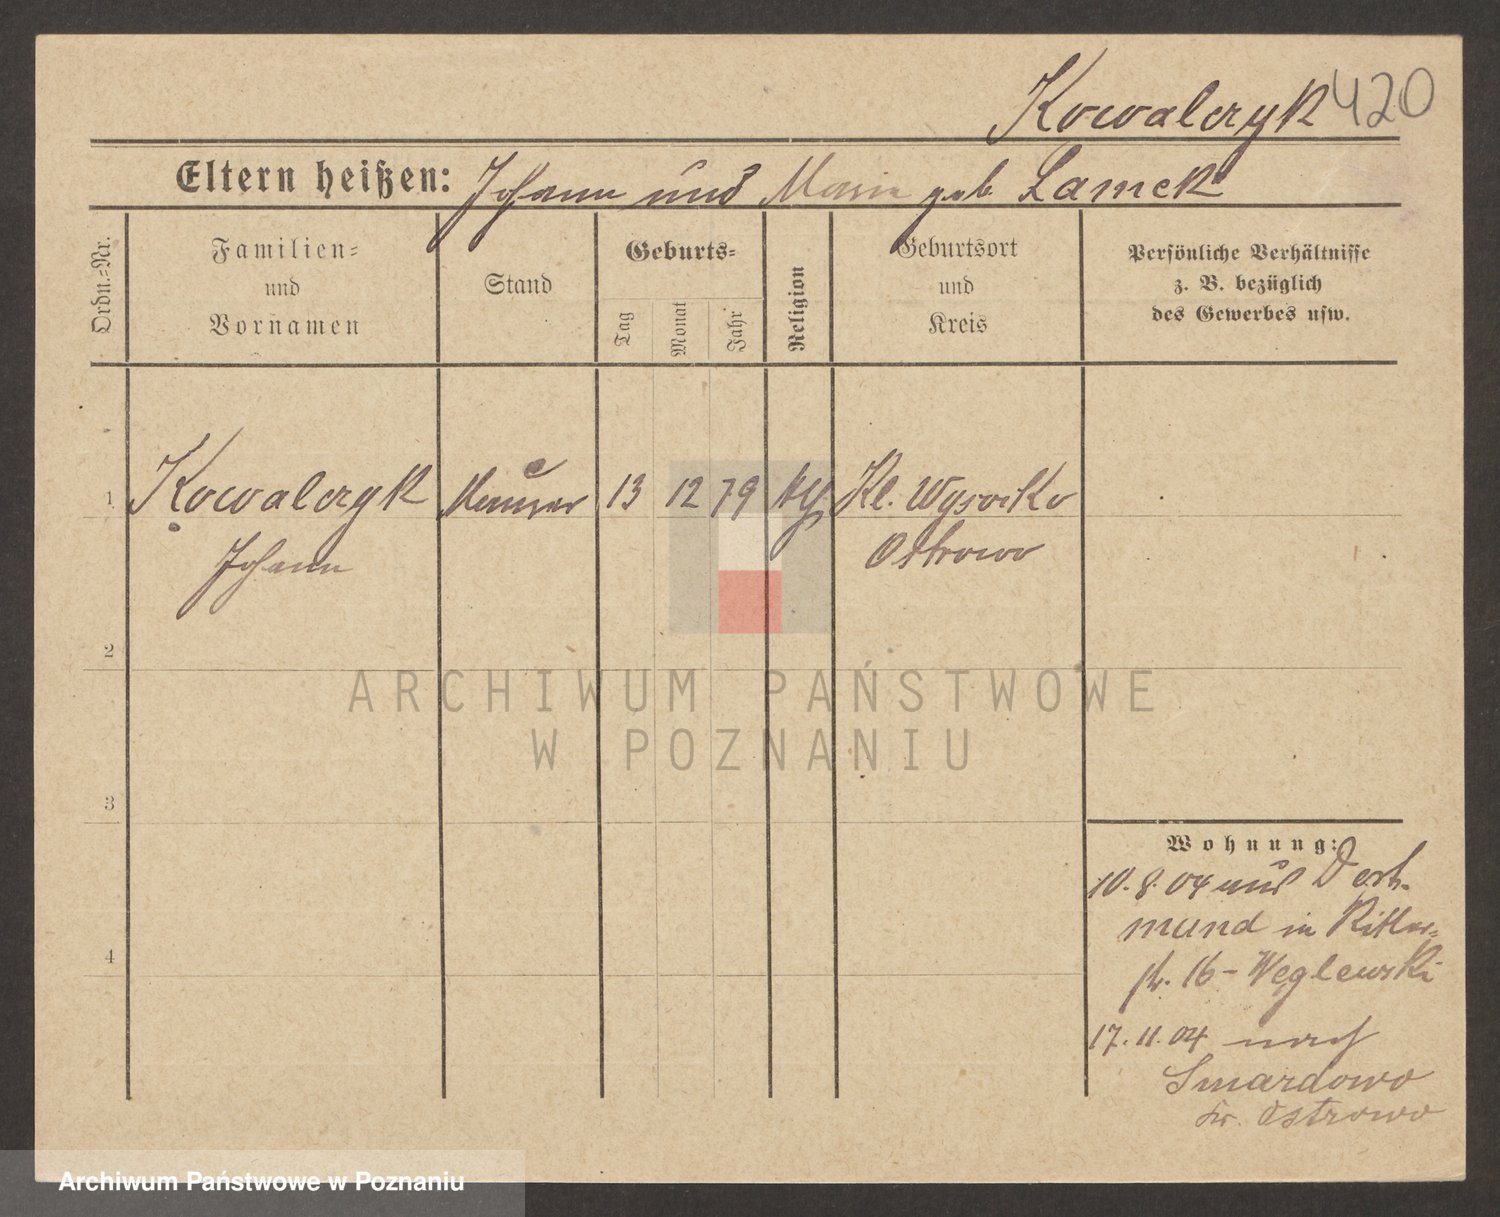 Kowalczyk 420
Eltern heißen: Johann und Maria geb. Lamek
Ordn.-Nr.
Familien-
und
Vornamen
Stand
Geburts-
Tag
Monat
Jahr
Religion
Geburtsort
und
Kreis
Persönliche Verhältnisse
z. B. bezüglich
des Gewerbes usw.
1 Kowalczyk Maurer 13 12 79 Kl. Wysocko
Johann Ostrowo
2
ARCHIWUM PAŃSTWOWE
W POZNANIU
3
Wohnung:
10.8.04 aus Dort-
mund in Ritter-
str. 16 - Węglewski
4
17.11.04 nach
Smardowo
Kr. Ostrowo
Archiwum Państwowe w Poznaniu